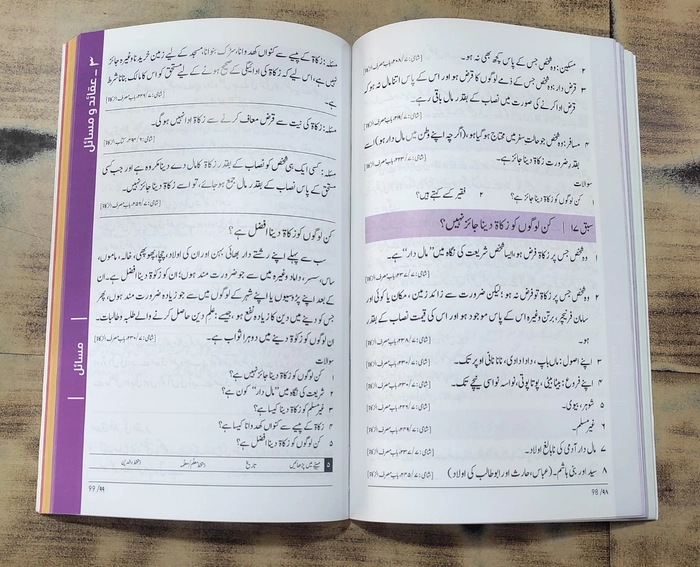 ۲ مسکین: وہ شخص جس کے پاس کچھ بھی نہ ہو۔ [شامی: ۲۰۸/۷، باب مصرف الزکاۃ]
۳ قرض دار: وہ شخص جس کے ذمے لوگوں کا قرض ہو اور اس کے پاس اتنا مال نہ ہو کہ
قرض ادا کرنے کی صورت میں نصاب کے بقدر مال باقی رہے۔
۴ مسافر: وہ شخص جو حالتِ سفر میں محتاج ہو گیا ہو، (اگر چہ اپنے وطن میں مال دار ہو) اسے
بقدر ضرورت زکاۃ دینا جائز ہے۔
سوالات
۱ کن لوگوں کو زکاۃ دینا جائز ہے؟ ۲ فقیر کسے کہتے ہیں؟
سبق ۱۷ | کن لوگوں کو زکاۃ دینا جائز نہیں؟
۱ وہ شخص جس پر زکاۃ فرض ہو، ایسا شخص شریعت کی نگاہ میں "مال دار" ہے۔
۲ وہ شخص جس پر زکاۃ تو فرض نہ ہو؛ لیکن ضرورت سے زائد زمین، مکان یا کوئی اور
سامان فرنیچر، برتن وغیرہ اس کے پاس موجود ہو اور اس کی قیمت نصاب کے بقدر
ہو۔
۳ اپنے اصول: ماں باپ، دادا دادی، نانا نانی اوپر تک۔
۴ اپنے فروع: بیٹا بیٹی، پوتا پوتی، نواسہ نواسی نیچے تک۔
۵ شوہر، بیوی۔
۶ غیر مسلم۔
۷ مال دار آدمی کی نابالغ اولاد۔
۸ سید اور بنی ہاشم۔ (عباس، حارث اور ابو طالب کی اولاد)
98 /۹۸
۳ ۔ عقائد و مسائل
مسئلہ: زکاۃ کے پیسے سے کنواں کھدوانا، سڑک بنوانا، مسجد کے لیے زمین خریدنا وغیرہ جائز
نہیں ہے، اس لیے کہ زکاۃ کی ادائیگی کے صحیح ہونے کے لیے مستحق کو اس کا مالک بنانا شرط
ہے۔
مسئلہ: زکاۃ کی نیت سے قرض معاف کرنے سے زکاۃ ادا نہیں ہوگی۔
مسئلہ: کسی ایک ہی شخص کو نصاب کے بقدر زکاۃ کا مال دے دینا مکروہ ہے اور جب کسی
مستحق کے پاس نصاب کے بقدر مال جمع ہو جائے، تو اسے زکاۃ دینا جائز نہیں۔
کن لوگوں کو زکاۃ دینا افضل ہے؟
سب سے پہلے اپنے رشتے دار بھائی بہن اور ان کی اولاد، چچا، پھوپھی، خالہ، ماموں،
ساس، سسر، داماد وغیرہ میں سے جو ضرورت مند ہوں؛ ان کو زکوۃ دینا افضل ہے۔ ان
کے بعد اپنے پڑوسیوں یا اپنے شہر کے لوگوں میں سے جو زیادہ ضرورت مند ہوں، پھر
جس کو دینے میں دین کا زیادہ نفع ہو، جیسے: علم دین حاصل کرنے والے طلبہ و طالبات۔
ان لوگوں کو زکوۃ دینے میں دوہرا ثواب ہے۔
سوالات
۱ کن لوگوں کو زکاۃ دینا جائز نہیں ہے؟
۲ شریعت کی نگاہ میں "مال دار" کون ہے؟
۳ غیر مسلم کو زکاۃ دینا کیسا ہے؟
۴ زکاۃ کے پیسے سے کنواں کھدوانا کیسا ہے؟
۵ کن لوگوں کو زکاۃ دینا افضل ہے؟
۵ مہینے میں پڑھائیں تاریخ دستخط معلم/معلمہ دستخط والدین
مسائل
99 /۹۹